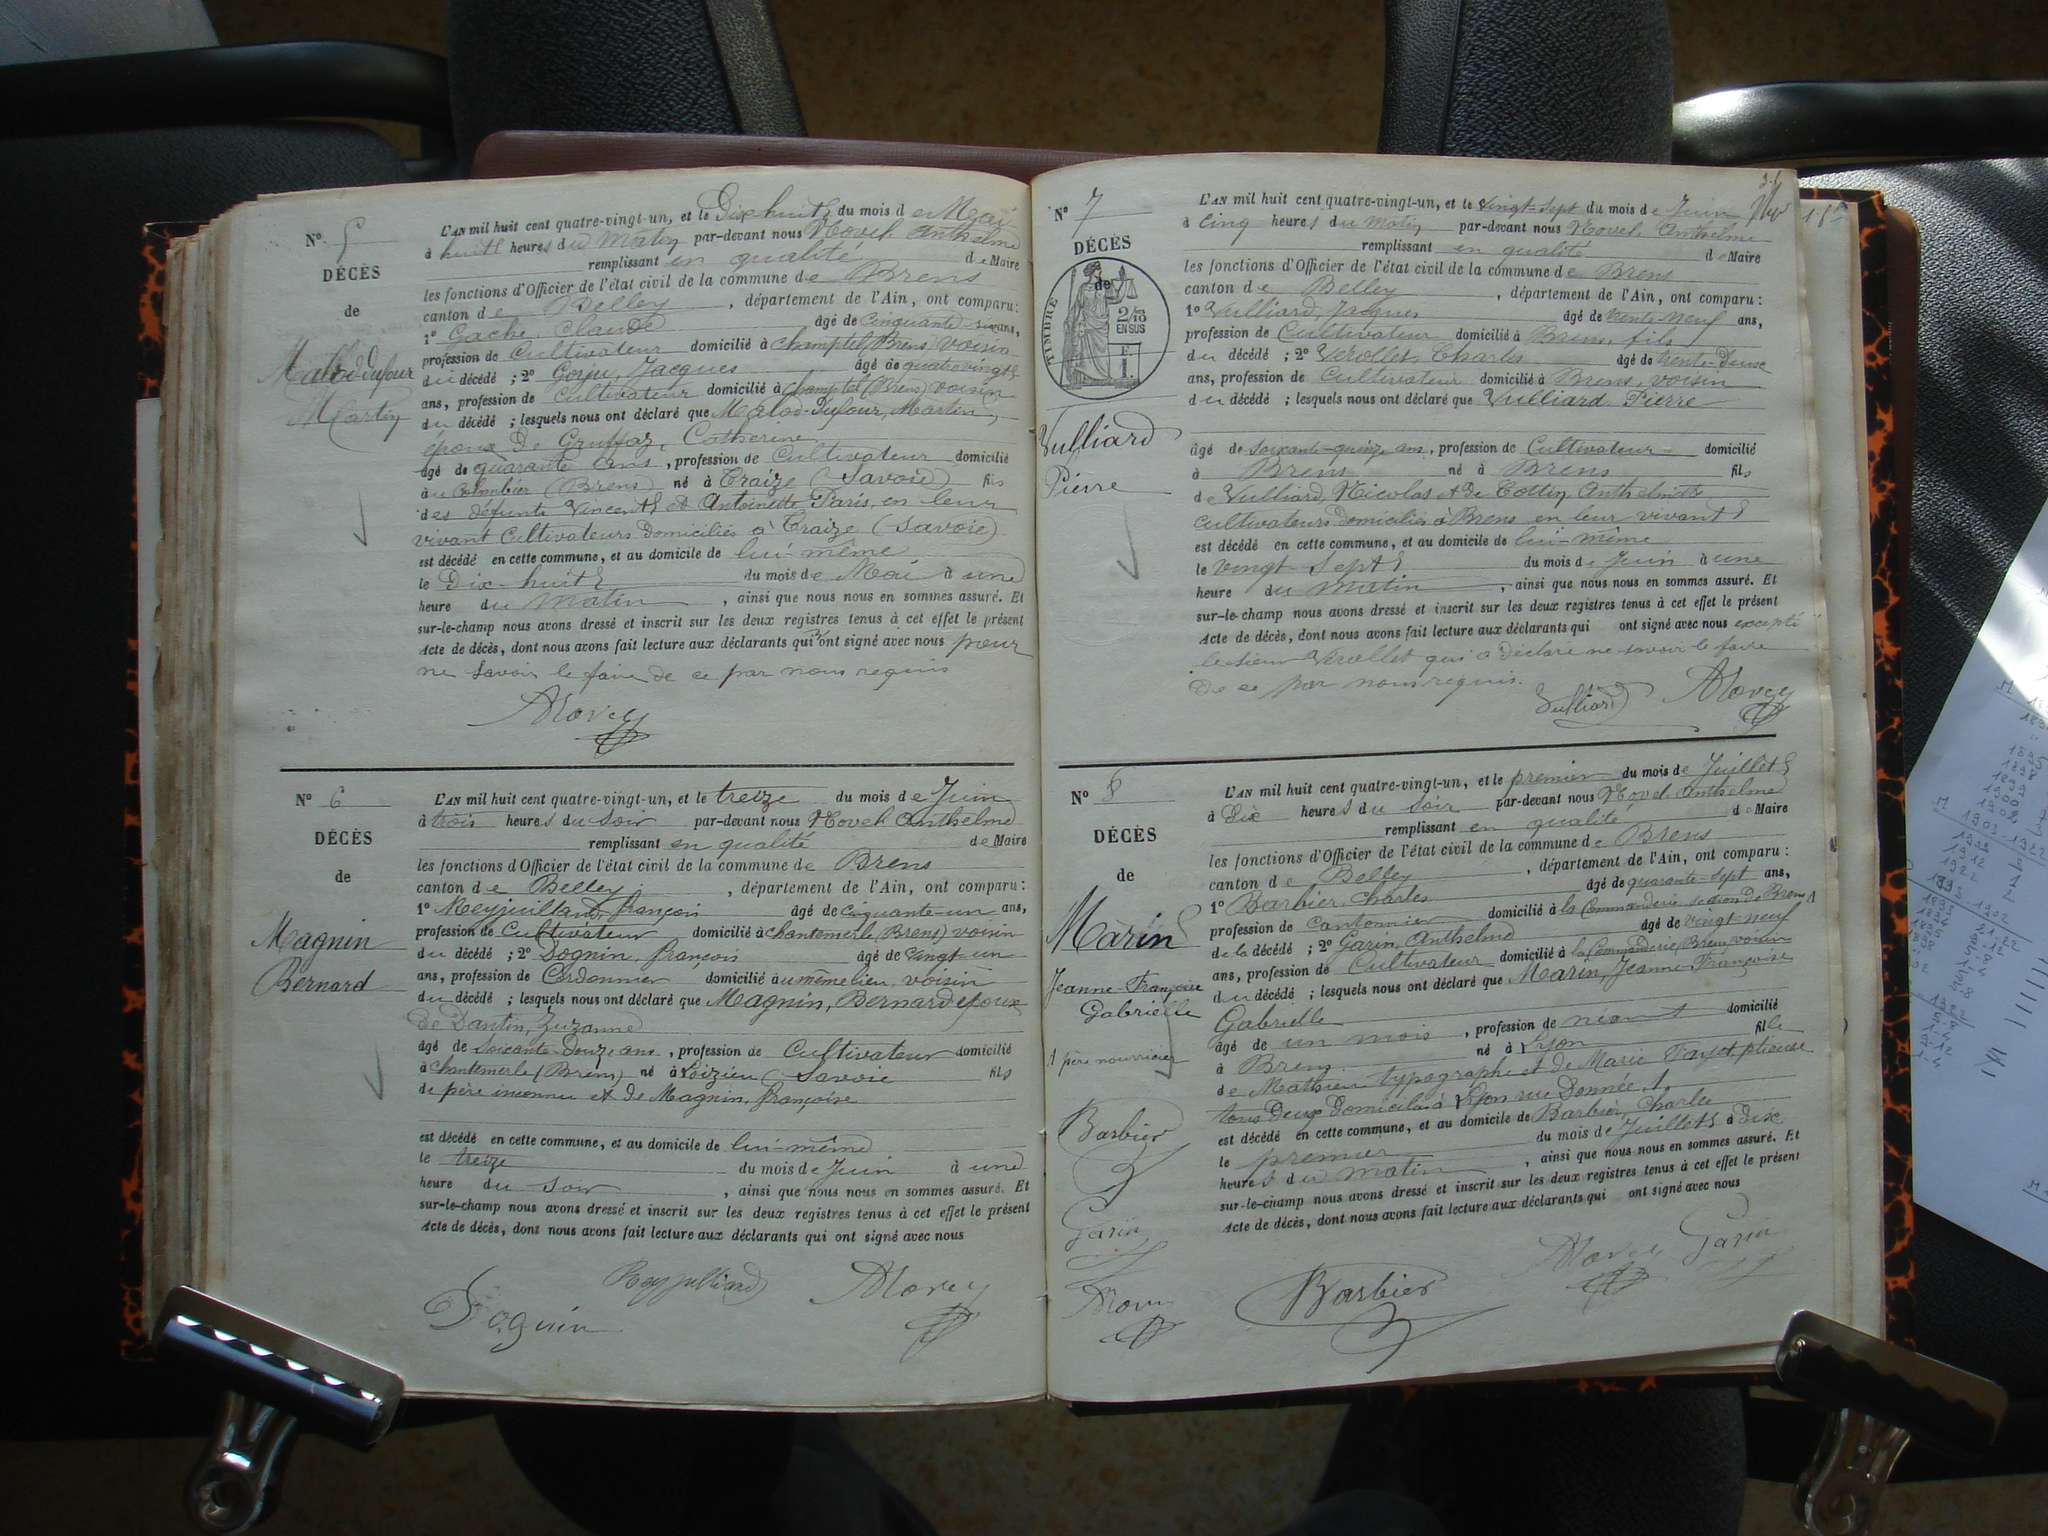 N° 5
DÉCÈS
de
Malod-dufour
Martin
L'AN mil huit cent quatre-vingt-un, et le Dix huit du mois de Mai
à huit heures du Matin par-devant nous Novel Anthelme
remplissant en qualité de Maire
les fonctions d'Officier de l'état civil de la commune de Brens
canton de Belley, département de l'Ain, ont comparu:
1° Gache, Claude âgé de cinquante-six ans,
profession de Cultivateur domicilié à Champtel (Brens) voisin
du décédé ; 2° Goyu, Jacques âgé de quatre vingt
ans, profession de Cultivateur domicilié à Champtel (Brens) voisin
du décédé ; lesquels nous ont déclaré que Malod-Dufour, Martin,
époux de Gruffaz, Catherine
âgé de quarante ans, profession de Cultivateur domicilié
à au Colombier (Brens) né à Traize (Savoie) fils
des défunts Vincent et Antoinette Paris, en leur
vivant Cultivateurs Domiciliés à Traize (Savoie)
est décédé en cette commune, et au domicile de lui-même
le Dix-huit du mois de Mai à une
heure du matin, ainsi que nous nous en sommes assuré. Et
sur-le-champ nous avons dressé et inscrit sur les deux registres tenus à cet effet le présent
Acte de décès, dont nous avons fait lecture aux déclarants qui n'ont signé avec nous pour
ne savoir le faire de ce par nous requis
ANovel
N° 6
DÉCÈS
de
Magnin
Bernard
L'AN mil huit cent quatre-vingt-un, et le treize du mois de Juin
à trois heures du soir par-devant nous Novel Anthelme
remplissant en qualité de Maire
les fonctions d'Officier de l'état civil de la commune de Brens
canton de Belley, département de l'Ain, ont comparu:
1° françois âgé de cinquante-un ans,
profession de Cultivateur domicilié à Chantemerle (Brens) voisin
du décédé ; 2° Dognin, françois âgé de vingt-un
ans, profession de Cordonnier domicilié au même lieu, voisin
du décédé ; lesquels nous ont déclaré que Magnin, Bernard époux
de Dantin, Suzanne
âgé de soixante-Douze ans, profession de Cultivateur domicilié
à Chantemerle (Brens) né à Loizieu Savoie fils
de père inconnu et de Magnin, françoise
est décédé en cette commune, et au domicile de lui-même
le treize du mois de Juin à une
heure du soir, ainsi que nous nous en sommes assuré. Et
sur-le-champ nous avons dressé et inscrit sur les deux registres tenus à cet effet le présent
Acte de décès, dont nous avons fait lecture aux déclarants qui ont signé avec nous
Dognin ANovel
N° 7
DÉCÈS
de
TIMBRE
2/10
EN SUS
F.
1.
Vulliard
Pierre
L'AN mil huit cent quatre-vingt-un, et le vingt-sept du mois de Juin
à Cinq heures du Matin par-devant nous Novel Anthelme
remplissant en qualité de Maire
les fonctions d'Officier de l'état civil de la commune de Brens
canton de Belley, département de l'Ain, ont comparu:
1° Vulliard, Jacques âgé de trente-neuf ans,
profession de Cultivateur domicilié à Brens, fils
du décédé ; 2° Verollet, Charles âgé de trente-Deux
ans, profession de Cultivateur domicilié à Brens, voisin
du décédé ; lesquels nous ont déclaré que Vulliard Pierre
âgé de soixante-quinze ans, profession de Cultivateur domicilié
à Brens né à Brens fils
de Vulliard, Nicolas et de Cottin Anthelmette
Cultivateurs Domiciliés à Brens en leur vivant
est décédé en cette commune, et au domicile de lui-même
le vingt-sept du mois de Juin à une
heure du matin, ainsi que nous nous en sommes assuré. Et
sur-le-champ nous avons dressé et inscrit sur les deux registres tenus à cet effet le présent
Acte de décès, dont nous avons fait lecture aux déclarants qui ont signé avec nous excepté
le sieur Verollet qui a déclaré ne savoir le faire
De ce par nous requis.
Vulliard ANovel
N° 8
DÉCÈS
de
Marin
Jeanne-Françoise
Gabrielle
1 père nourricier
Barbier
Garin
ANovel
L'AN mil huit cent quatre-vingt-un, et le premier du mois de Juillet
à Dix heures du soir par-devant nous Novel Anthelme
remplissant en qualité de Maire
les fonctions d'Officier de l'état civil de la commune de Brens
canton de Belley, département de l'Ain, ont comparu:
1° Barbier, Charles âgé de quarante-sept ans,
profession de Cantonnier domicilié à la Commanderie section de Brens 1
de la décédé ; 2° Garin, Anthelme âgé de vingt-neuf
ans, profession de Cultivateur domicilié à la Commanderie, Brens, voisin
du décédé ; lesquels nous ont déclaré que Marin, Jeanne Françoise
Gabrielle
âgé de un mois, profession de néant domicilié
à Brens né à Lyon fille
de Mathieu typographe et de Marie Fayet plieuse
tous Deux Domiciliés à Lyon rue Donnée 1.
est décédé en cette commune, et au domicile de Barbier, Charles
le premier du mois de Juillet à Dix
heures du matin, ainsi que nous nous en sommes assuré. Et
sur-le-champ nous avons dressé et inscrit sur les deux registres tenus à cet effet le présent
Acte de décès, dont nous avons fait lecture aux déclarants qui ont signé avec nous
Barbier ANovel Garin